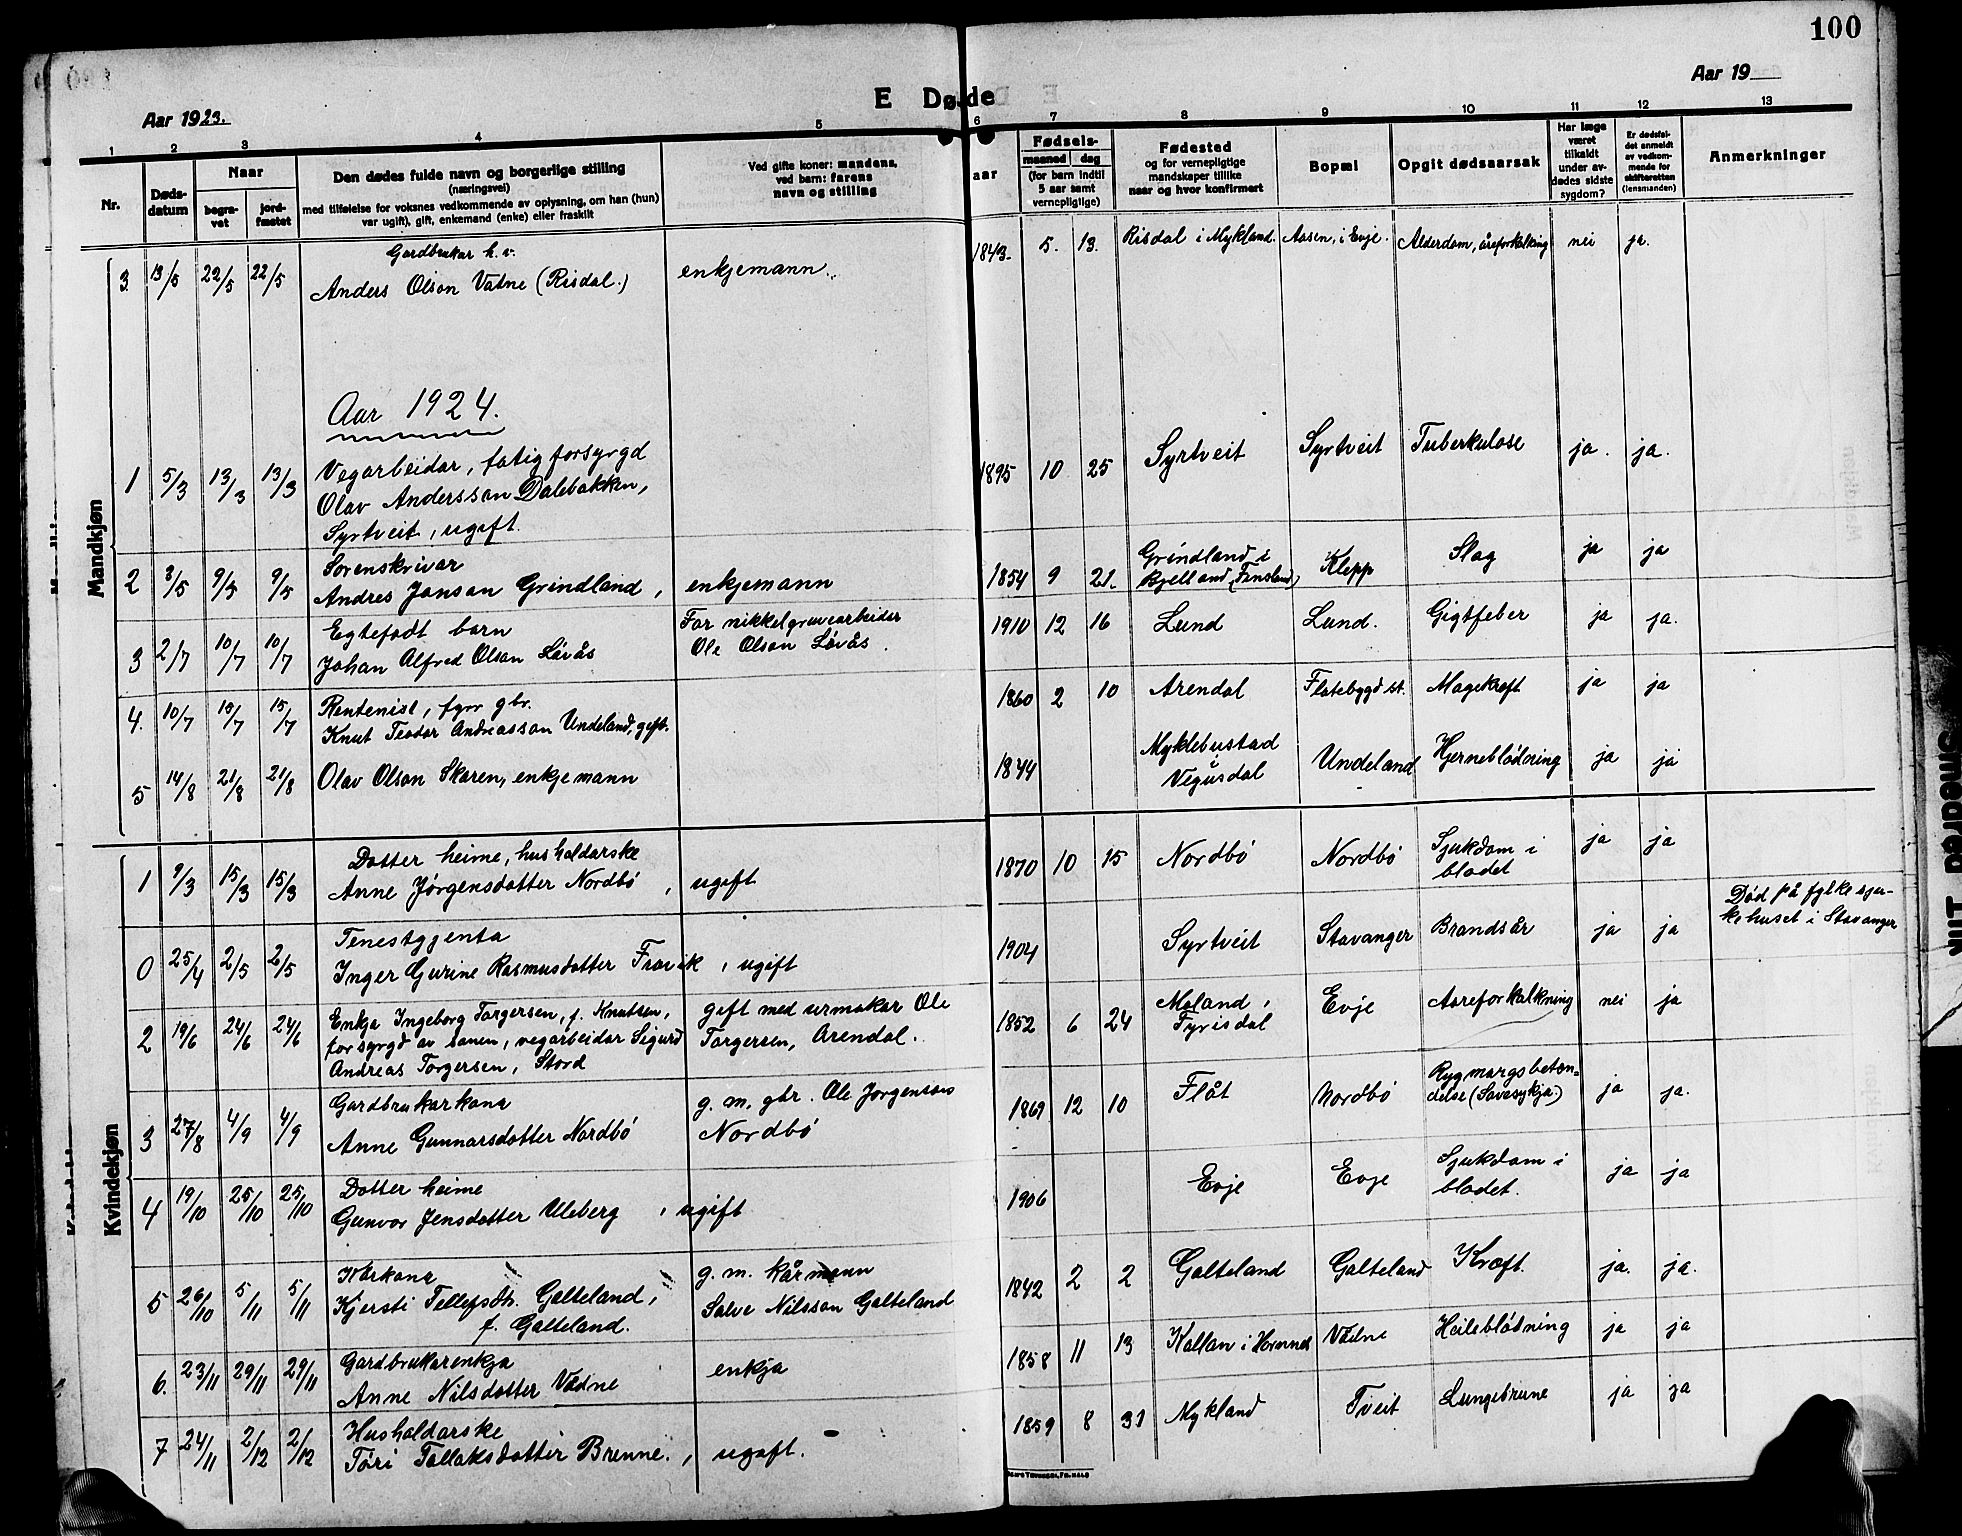 100
Aar 1923.
E Døde
Aar 19
1 2 3 4 5 6 7 8 9 10 11 12 13
Nr.
Døds-
datum
Naar
begra-
vet
jord-
fæstet
Den dødes fulde navn og borgerlige stilling
(næringsvei)
med tilføielse for voksnes vedkommende av oplysning, om han (hun)
var ugift, gift, enkemand (enke) eller fraskilt
Ved gifte koner: mandens,
ved barn: farens
navn og stilling
aar
Fødsels-
maaned dag
(for barn indtil
5 aar samt
vernepligtige)
Fødested
og for vernepligtige
mandskaper tillike
naar og hvor konfirmert
Bopæl
Opgit dødsaarsak
Har læge
været
tilkaldt
under av-
dødes sidste
sygdom?
Er dødsfal-
det anmeldt
av vedkom-
mende for
skifteretten
(lensmanden)
Anmerkninger
Mandkjøn
Gardbrukar h. v.
3. 13/5 22/5 22/5 Anders Olson Vatne (Risdal.) enkjemann. 1843. 5. 13. Risdal i Mykland. Aasen, i Evje. Alderdom, åreforkalking nei ja.
Aar 1924.
Vegarbeidar, fatigforsyrgd
1 5/3 13/3 13/3 Olav Andersson Dalebakken, 1895 10 25 Syrtveit Syrtveit Tuberkulose ja. ja.
Syrtveit, ugift.
Sorenskrivar
2 3/5 9/5 9/5 Andres Jonson Grindland, enkjemann 1854 9 21. Grindland i Klepp Slag ja ja
Bjelland (Finsland)
Egtefødt barn Far nikkelgruvearbeider
3 2/7 10/7 10/7 Johan Alfred Olson Lövås Ole Olson Lövås. 1910 12 16 Lund Lund. Gigtfeber ja ja.
Rentenist, fyrr gbr.
4. 10/7 15/7 15/7 Knut Teodor Andreasson Undeland, gift. 1860 2 10 Arendal Flatebygd st. Magekreft ja ja
5 14/8 21/8 21/8 Olav Olson Skaren, enkjemann 1844 Myklebustad Undeland Hjerneblödning ja ja
Vegusdal
Kvindekjøn
Dotter heime, hushaldarske
1 9/3 15/3 15/3 Anne Jörgensdotter Nordbö, ugift 1870 10 15 Nordbö Nordbö Sjukdom i ja ja
blodet
Tenestgjenta Död på fylkesju-
kehuset i Stavanger
0 25/4 2/5 2/5 Inger Gurine Rasmusdotter Fravik, ugift 1904 Syrtveit Stavanger Brandsår ja ja
Enkja Ingeborg Torgersen, f. Knutsen, gift med urmakar Ole
2 19/6 24/6 24/6 forsyrgd av sonen, vegarbeidar Sigurd Torgersen, Arendal. 1852 6 24 Moland i Evje Aareforkalkning nei ja
Fyrisdal
Andreas Torgersen, Stord
Gardbrukarkona g. m. gbr. Ole Jorgenson
3 27/8 4/9 4/9 Anne Gunnarsdotter Nordbö Nordbö 1869 12 10 Flåt Nordbö Rygmargsbeten- ja ja.
delse (Savasykja.)
Dotter heime
4 19/10 25/10 25/10 Gunvor Jensdotter Uleberg, ugift 1906 Evje Evje Sjukdom i ja ja
blodet.
Kårkona g. m. kårmann
5 26/10 5/11 5/11 Kjersti Tellefsdtr. Galteland, Salve Nilsson Galteland 1842 2 2 Galteland Galteland Kræft. ja. ja.
f. Galteland.
Gardbrukarenkja enkja
6. 23/11 29/11 29/11 Anne Nilsdotter Vatne 1858 11 13 Kallan i Hornnes Vatne Heileblödning ja ja
Hushaldarske
7 24/11 2/12 2/12 Töri Tallaksdotter Brenne., ugift. 1859 8 31 Mykland Tveit Lungebrune ja ja